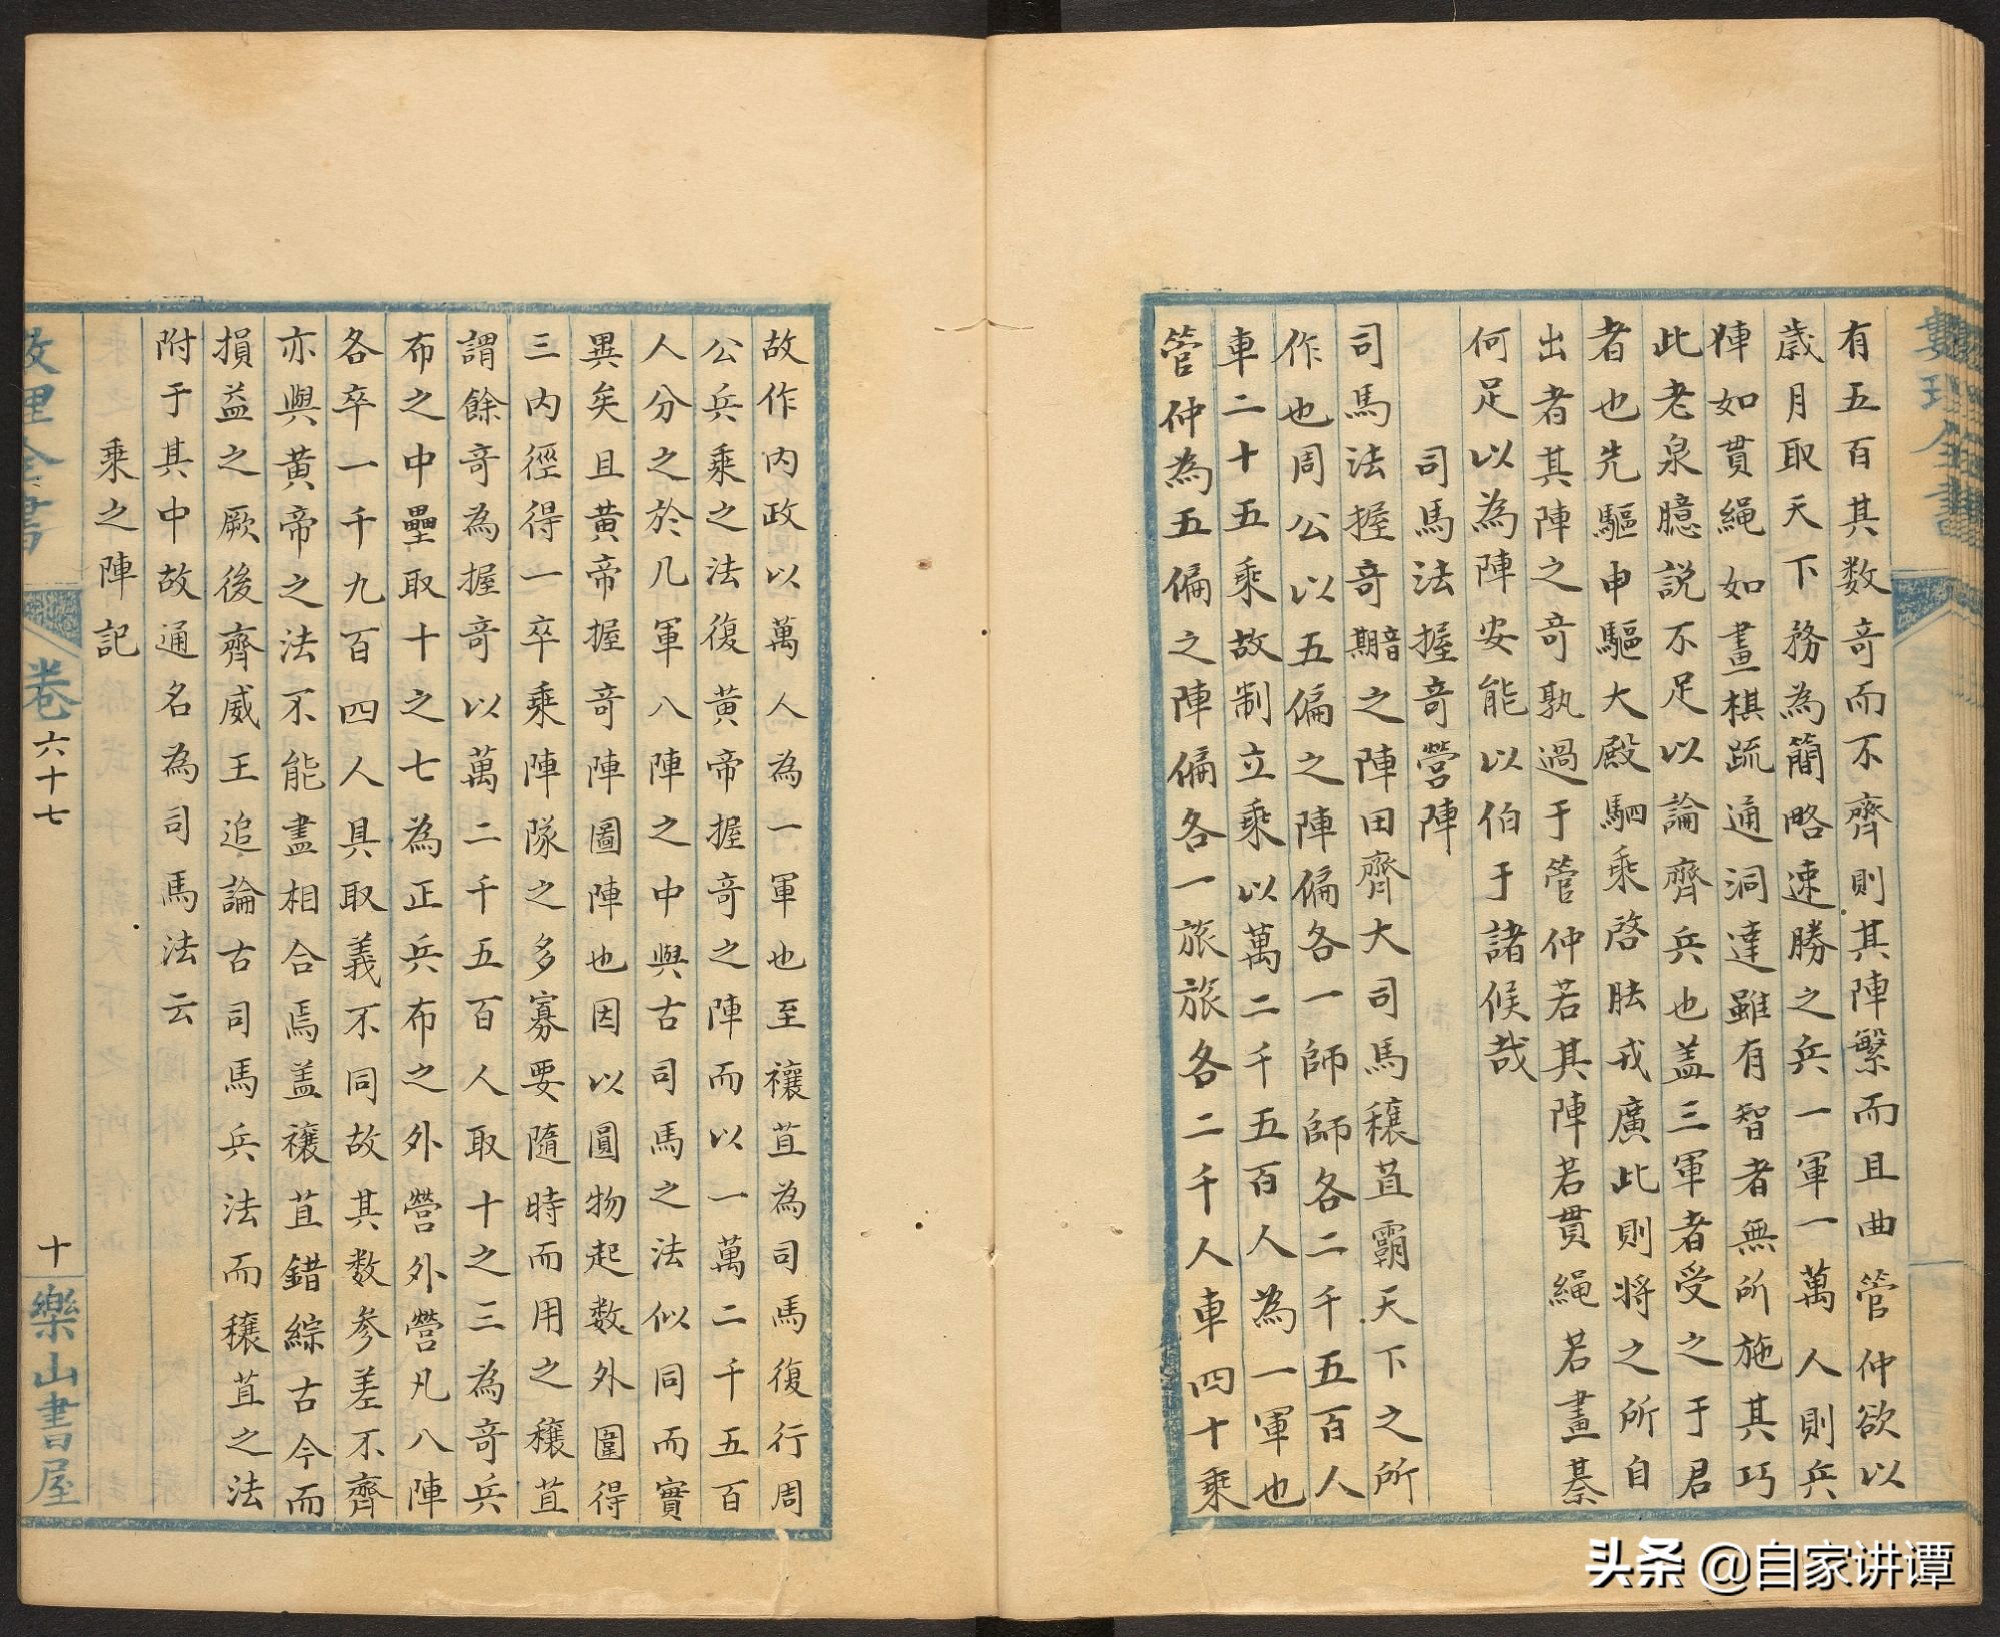 有五百其数奇而不齊則其陣繁而且曲管仲欲以
歳月取天下務為簡略速勝之兵一軍一萬人則兵
陣如貫繩如畫棋疏通洞達雖有智者無所施其巧
此老泉臆説不足以論齊兵也盖三軍者受之于君
者也先驅申驅大殿駟乘啓胠戎廣此則将之所自
出者其陣之奇孰過于管仲若其陣若貫繩若畫棊
何足以為陣安能以伯于諸候哉
司馬法握奇營陣
司馬法握奇之陣田齊大司馬穰苴霸天下之所
作也周公以五偏之陣偏各一師師各二千五百人
車二十五乘故制立乘以萬二千五百人為一軍也
管仲為五偏之陣偏各一旅旅各二千人車四十乘
故作内政以萬人為一軍也至穰苴為司馬復行周
公兵乘之法復黄帝握奇之陣而以一萬二千五百
人分之於几軍八陣之中與古司馬之法似同而實
異矣且黄帝握奇陣圖陣也因以圓物起数外圍得
三内徑得一卒乘陣隊之多寡要隨時而用之穰苴
謂餘奇為握奇以萬二千五百人取十之三為奇兵
布之中壘取十之七為正兵布之外營外營凡八陣
各卒一千九百四人具取義不同故其数参差不齊
亦與黄帝之法不能盡相合焉盖穰苴錯綜古今而
損益之厥後齊威王追論古司馬兵法而穰苴之法
附于其中故通名為司馬法云
乘之陣記
数理全書
卷六十七
十
樂山書屋
头条 @自家讲谭